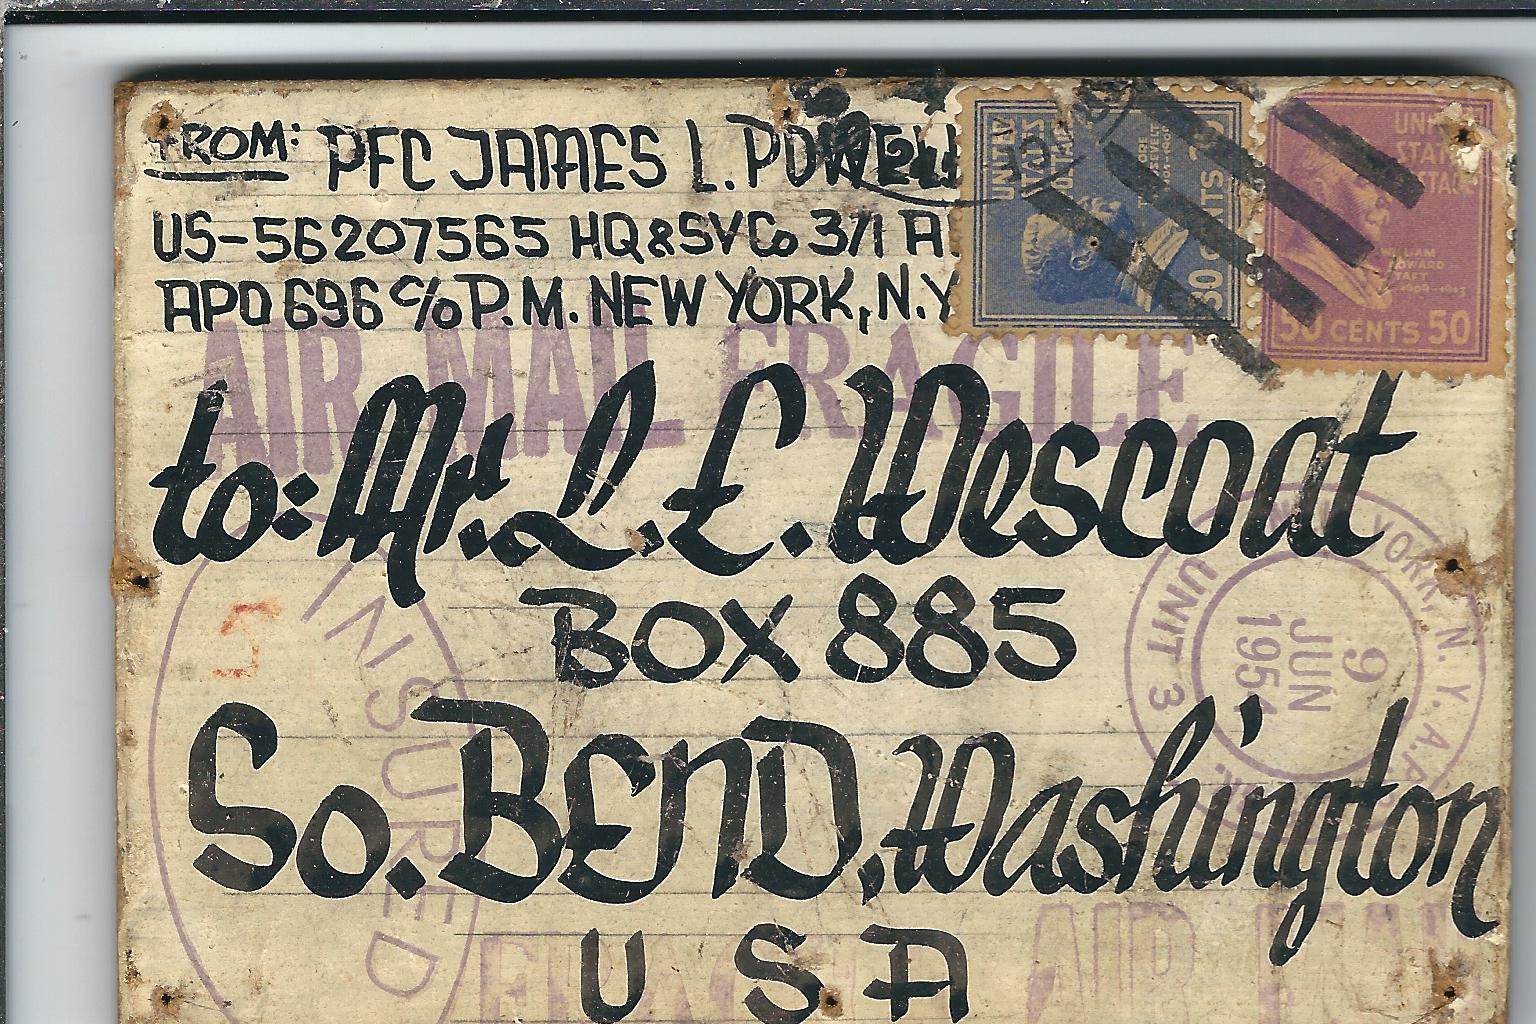 FROM: PFC JAMES L. POWELL
US-56207565 HQ & SV Co 371 A
APO 696 c/o P.M. NEW YORK, N.Y
UNITED STATES POSTAGE
THEODORE ROOSEVELT
1901-1909
30 CENTS 30
UNITED STATES POSTAGE
WILLIAM HOWARD TAFT
1909-1913
50 CENTS 50
AIR MAIL FRAGILE
to: Mr. L. E. Wescoat
BOX 885
So. BEND, Washington
U S A
INSURED
NEW YORK, N. Y. A.P.
UNIT 3
9
JUN
1954
FRAGILE AIR MAIL